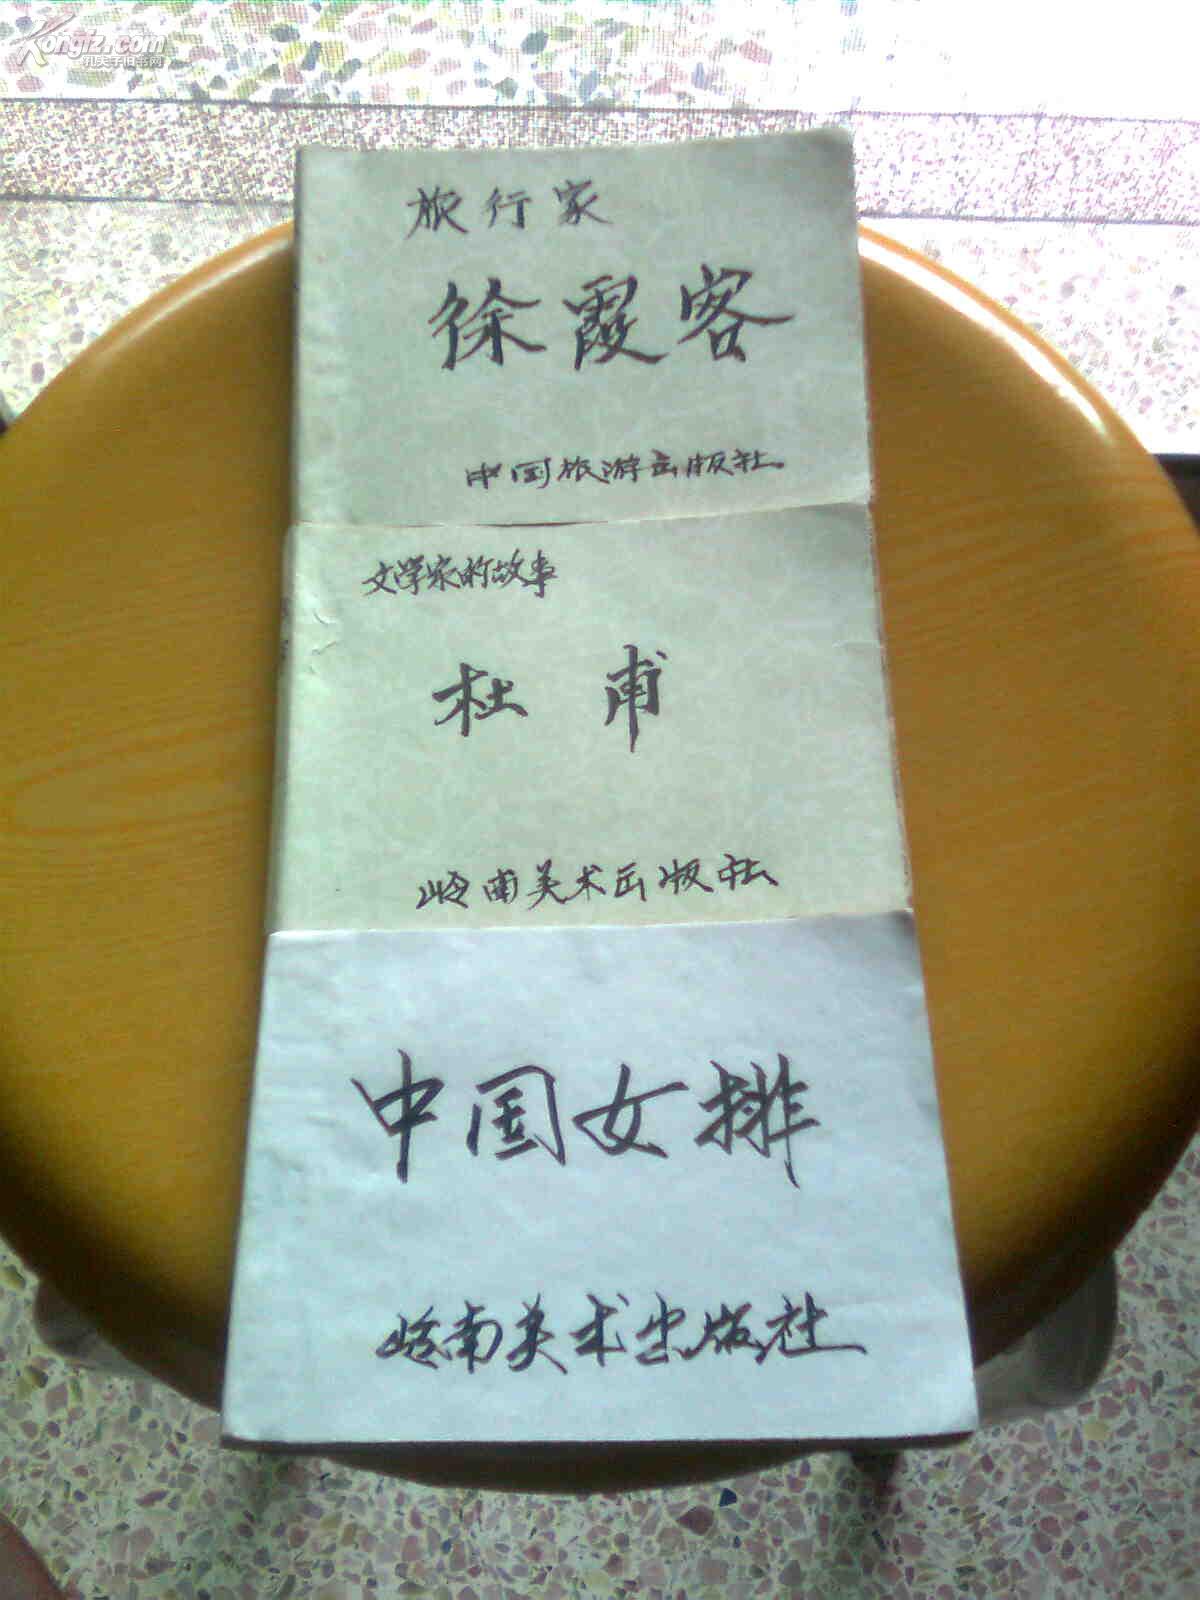 Kongfz.com
孔夫子旧书网
旅行家
徐霞客
中国旅游出版社
文学家的故事
杜甫
岭南美术出版社
中国女排
岭南美术出版社